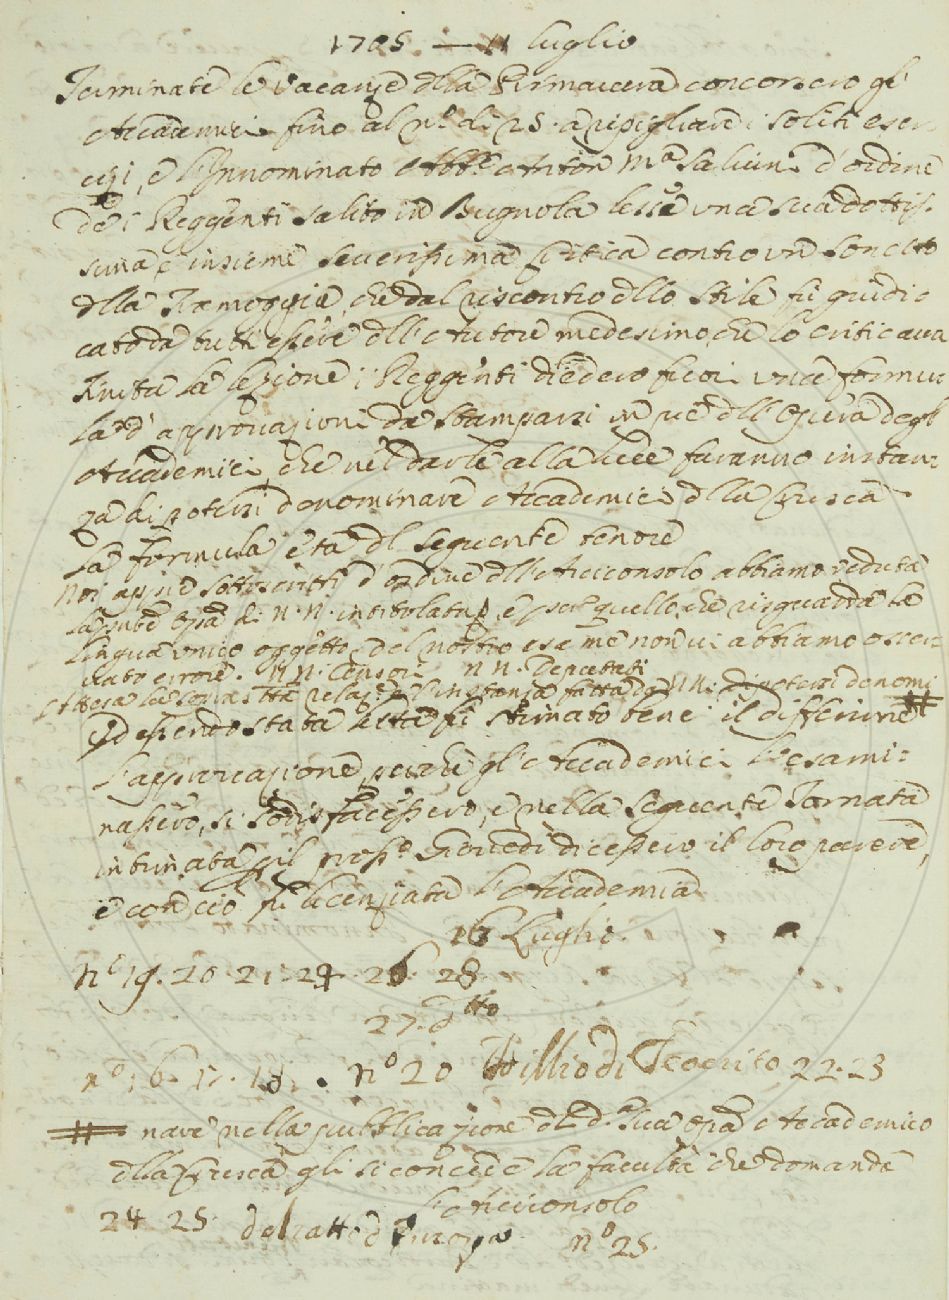 1705 — 11 luglio
Terminate le Vacanze dlla Primavera concorsero gl'
Accademici fino al n.o di 25. a ripigliare i soliti eser-
cizi, e l'Innominato Abb.e Anton M.a Salvini d'ordine
de i Reggenti salito in Bugnola lesse una sua dottis-
sima e insieme severissima Critica contro un Sonetto
dlla Tramoggia, che dal riscontro dllo stile fu giudi-
cato da tutti essere dll'Autore medesimo, che lo criticava
Finita la lezione i Reggenti diedero fuori una formu-
la d'approvazioni da stamparsi in piè dll'Opera degl'
Accademici, che nel darle alla luce faranno instan-
za di potersi denominare Accademici dlla Crusca
La formula è ta dl seguente tenore
Noi appiè sottoscritti d'ordine dll'Arciconsolo abbiamo veduta
la pnte Opa di N. N. intitolata e per quello, che risguarda la
lingua unico oggetto del nostro esame non vi abbiamo osser-
vato errore. N. N. Censori N. N. Deputati
Attesa la sopra tta relaz.e l'instanza fatta da N.N. di potersi denomi
Ed essendo stata letta fu stimato bene il differirne
l'approvazione, perchè gl'Accademici l'esami-
nassero, si sodisfacessero, e nella seguente Tornata
intimata pl pross.o Giovedì dicessero il loro parere,
e con ciò fu licenziata l'Accademia
16 Luglio.
N.o 19. 20. 21. 24. 26. 28.
27. dtto
n.o 16. 17. 18. n.o 20 Idillio di Teocrito 22. 23
# nare nella pubblicazione dl d.a sua opa Accademico
dlla Crusca gli si concede la facultà che domanda
l'Arciconsolo
24 25. n.o 25.